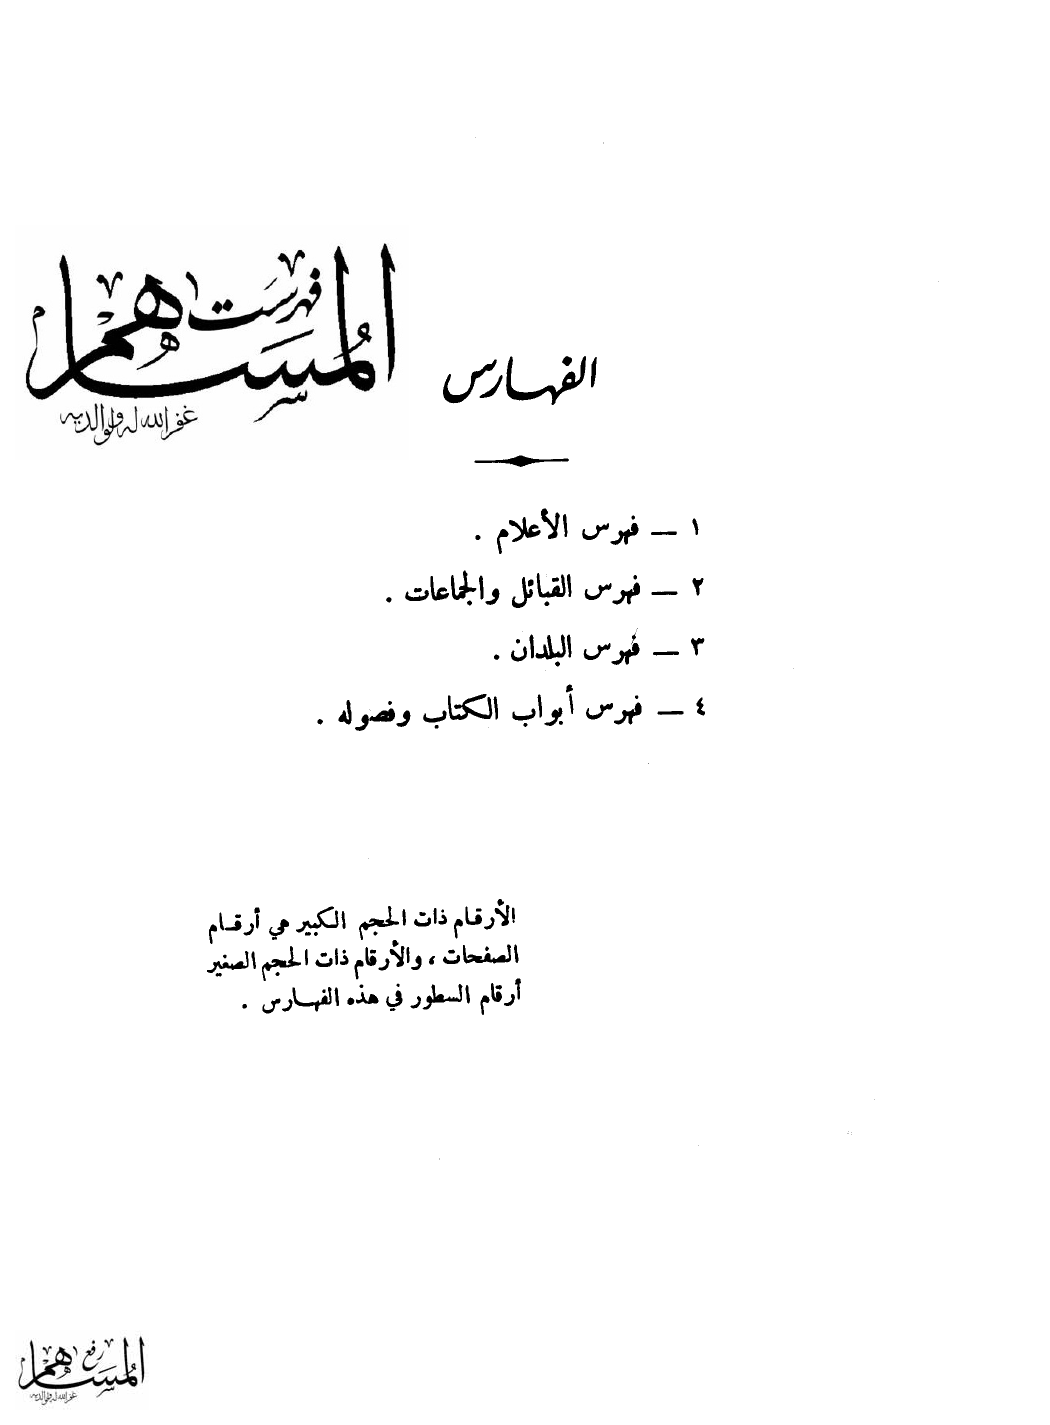 فهرست
المساهم
غفر الله له ولوالديه
الفهارس
١ — فهرس الأعلام .
٢ — فهرس القبائل والجماعات .
٣ — فهرس البلدان .
٤ — فهرس أبواب الكتاب وفصوله .
الأرقام ذات الحجم الكبير هي أرقام
الصفحات ، والأرقام ذات الحجم الصغير
أرقام السطور في هذه الفهارس .
رفع
المساهم
غفر الله له ولوالديه